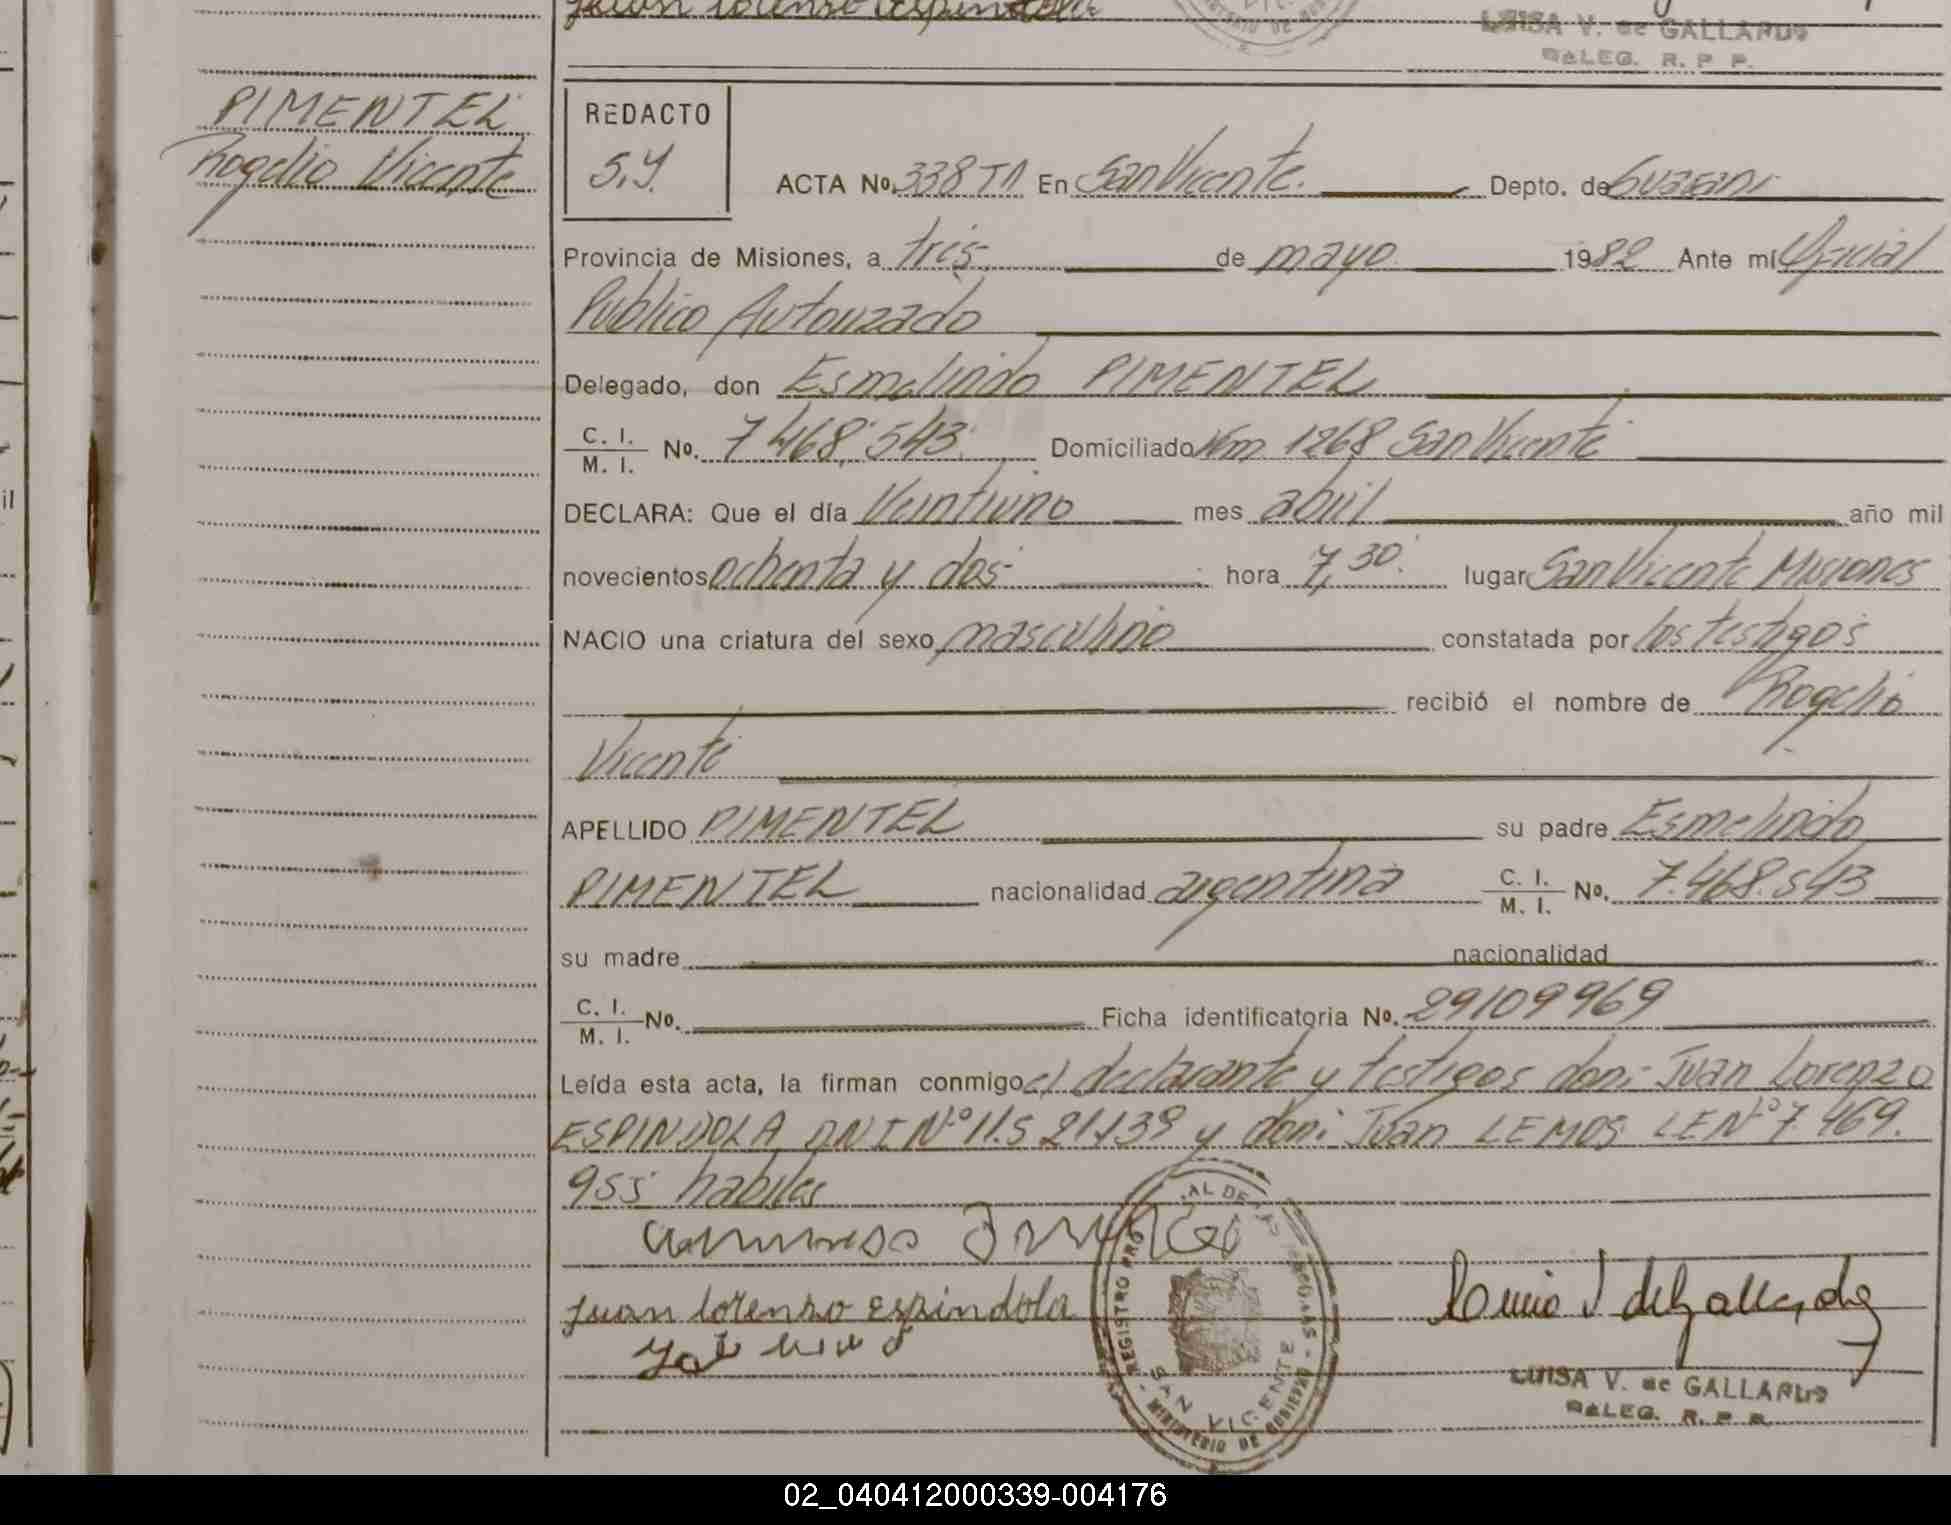 Juan Lorenzo Espindola
LUISA V. de GALLARDO
DELEG. R. P. P.
PIMENTEL
Rogelio Vicente
REDACTO
S.Y.
ACTA No. 338 TI En San Vicente. Depto. de Guaraní
Provincia de Misiones, a tres de mayo 1982 Ante mí Oficial
Publico Autorizado
Delegado, don Esmelindo PIMENTEL
C. I. / M. I. No. 7.468.543 Domiciliado Km 1268 San Vicente
DECLARA: Que el día Veintiuno mes abril año mil
novecientos ochenta y dos hora 7,30 lugar San Vicente Misiones
NACIO una criatura del sexo masculino constatada por los testigos
recibió el nombre de Rogelio
Vicente
APELLIDO PIMENTEL su padre Esmelindo
PIMENTEL nacionalidad argentina C. I. / M. I. No. 7.468.543
su madre nacionalidad
C. I. / M. I. No. Ficha identificatoria No. 29109969
Leída esta acta, la firman conmigo el declarante y testigos don: Juan Lorenzo
ESPINDOLA DNI Nº 11.521.139 y don: Juan LEMOS LE Nº 7.469.
955 habiles
Juan Lorenzo Espindola
REGISTRO
SAN VICENTE
MINISTERIO DE GOBIERNO
LUISA V. de GALLARDO
DELEG. R. P. P.
02_040412000339-004176